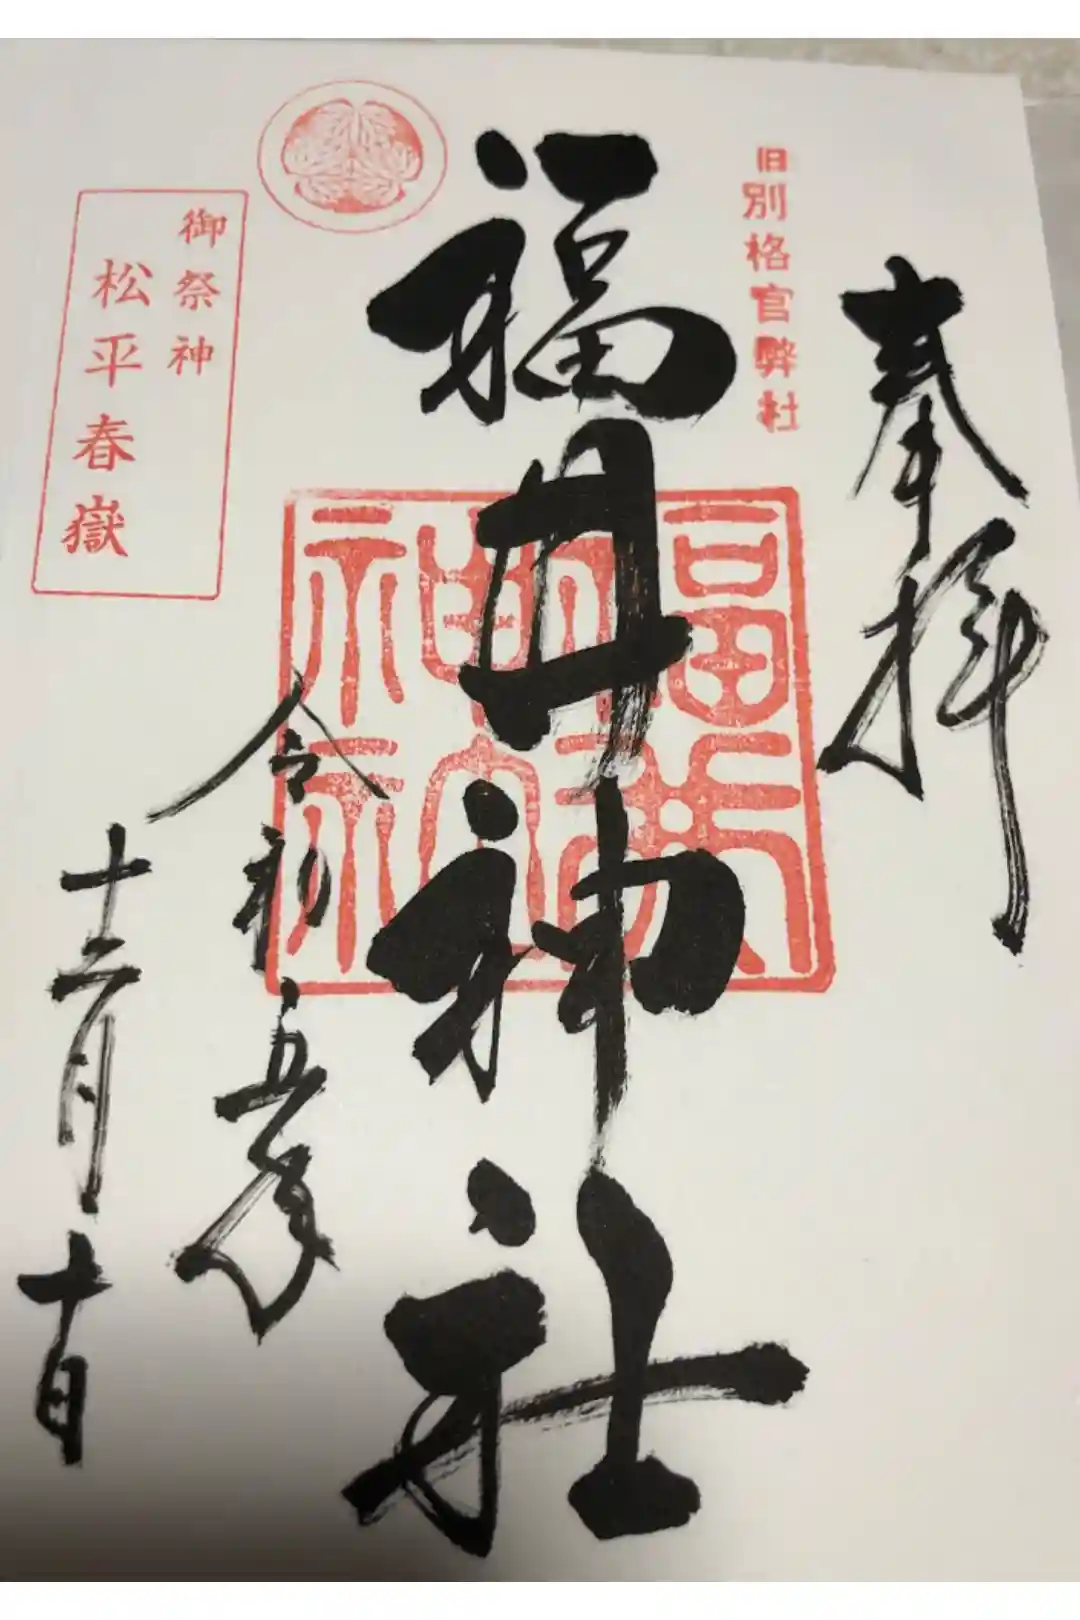 奉拝
旧別格官弊社
福井神社
福井神社
御祭神
松平春嶽
令和五年
十二月十日